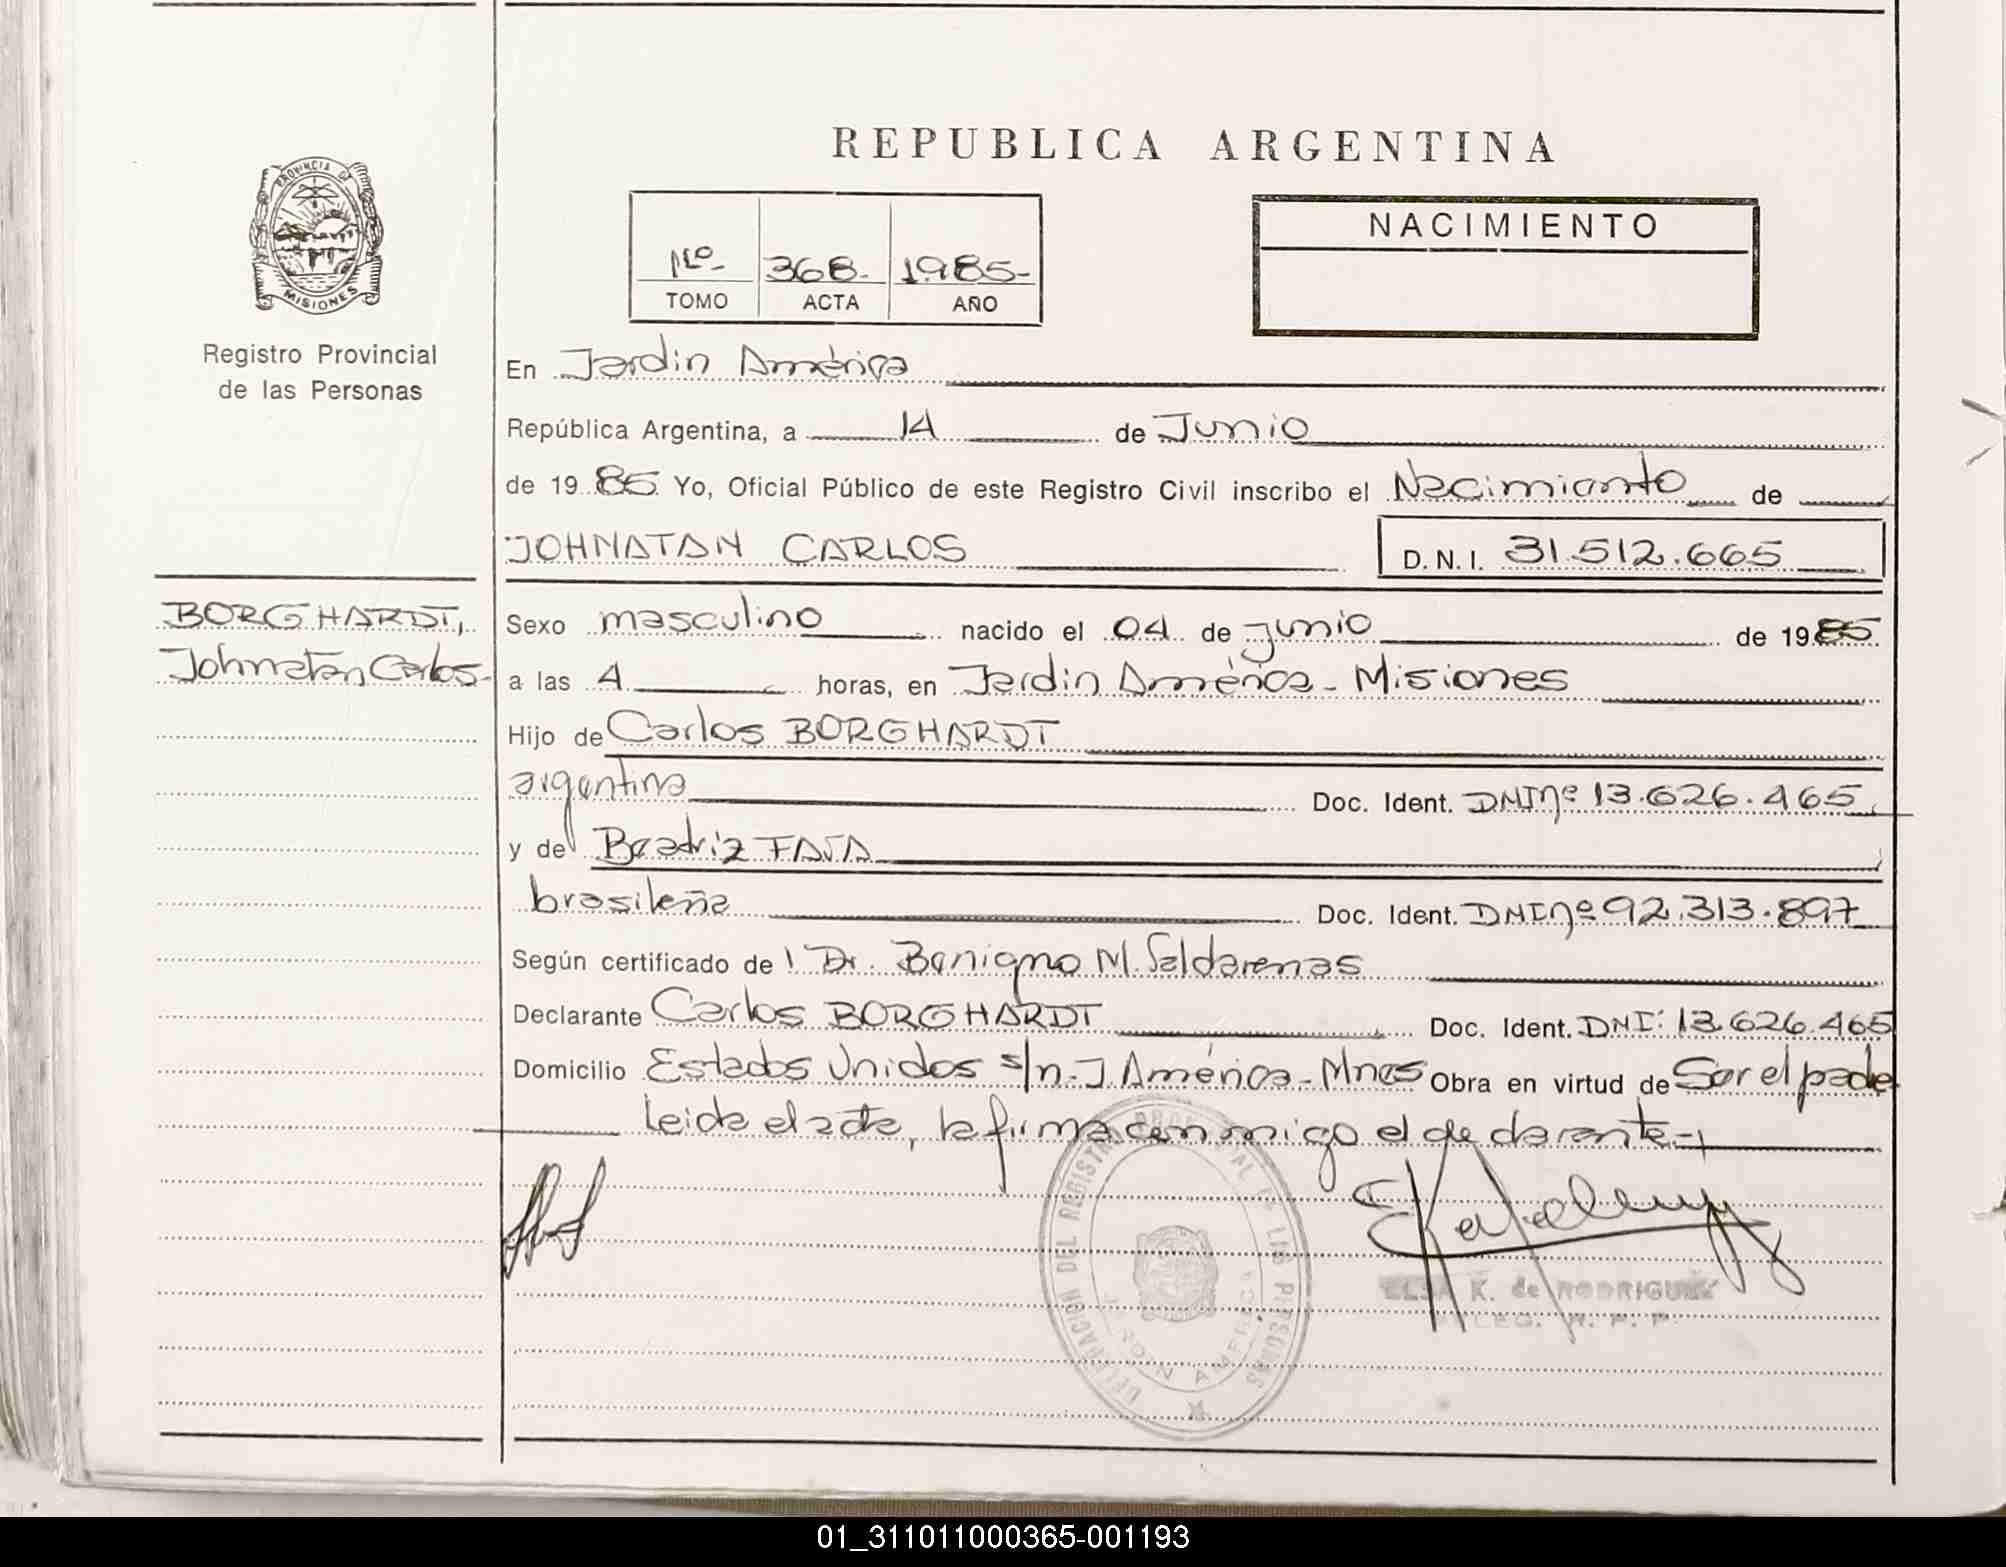 REPUBLICA ARGENTINA
PROVINCIA DE
MISIONES
Registro Provincial
de las Personas
Nº- 368- 1985-
TOMO ACTA AÑO
NACIMIENTO
En Jardin América
República Argentina, a 14 de Junio
de 1985. Yo, Oficial Público de este Registro Civil inscribo el Nacimiento de
JOHNATAN CARLOS D.N.I. 31.512.665
BORGHARDT,
Johnatan Carlos-
Sexo masculino nacido el 04 de junio de 1985
a las 4 horas, en Jardin América - Misiones
Hijo de Carlos BORGHARDT
argentina Doc. Ident. DNI nº 13.626.465
y de Beatriz
brasileña Doc. Ident. DNI nº 92.313.897
Según certificado de l Dr. Benigno M. Saldarenas
Declarante Carlos BORGHARDT Doc. Ident. DNI: 13.626.465
Domicilio Estados Unidos s/n. J. América - Mnes Obra en virtud de Ser el padre
Leida el acta, la firma conmigo el declarante-
DELEGACION DEL REGISTRO PROVINCIAL DE LAS PERSONAS
JARDIN AMERICA
ELSA K. de RODRIGUEZ
01_311011000365-001193